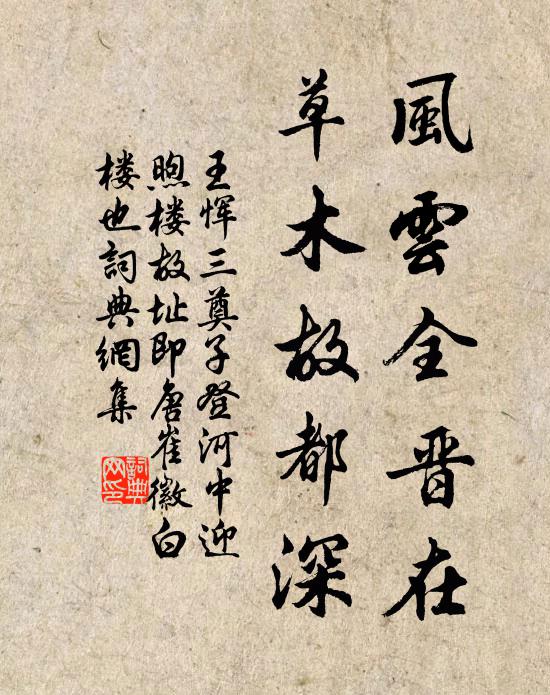 風雲全晋在
草木故都深
王恽三奠子登河中迎
煦楼故址即唐崔徽白
楼也詞典網集
詞典
网印